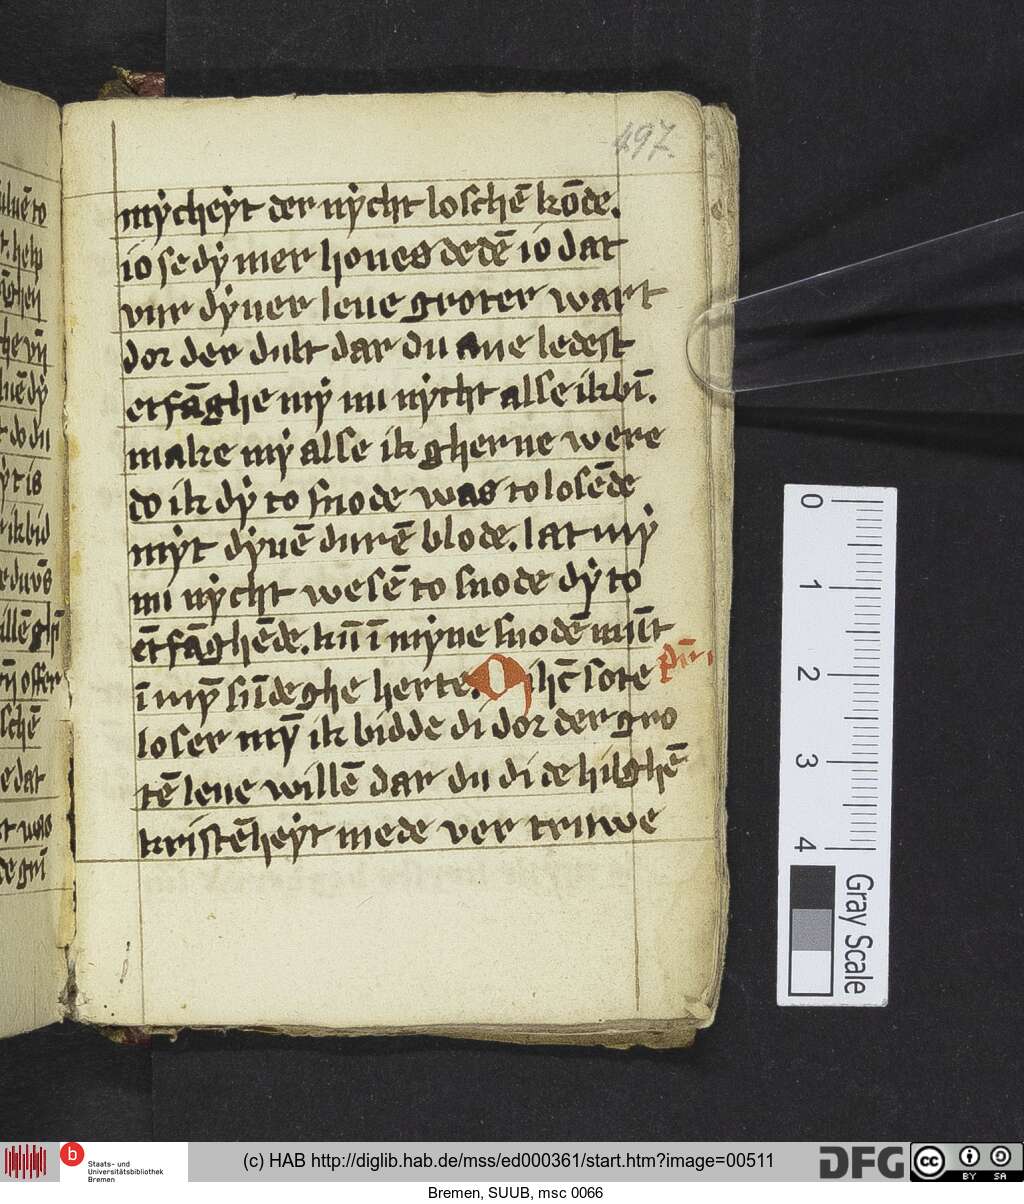 497.
mẏcheẏt der nẏcht loschē kōde.
io se dẏ mer houes dedē io dat
vnr dẏner leue groter wart
dor der dult dar du ane ledest
etfāghe mẏ nu nẏcht alse ik bī.
make mẏ alse ik gherne were
do ik dẏ to snode was to losēde
mẏt dẏnē durē blode. lat mẏ
nu nẏcht wesē to snode dẏ to
ētfāghēde. kū ī mẏne snodē mūt
ī mȳ sūdeghe herte. O ihc̄ sote
loser mȳ ik bidde di dor der gro
tē leue willē dar du di de hilghē
kristēheẏt mede vor truwe
0
1
2
3
4
Gray Scale
b Staats- und
Universitätsbibliothek
Bremen
(c) HAB http://diglib.hab.de/mss/ed000361/start.htm?image=00511
DFG
cc BY SA
Bremen, SUUB, msc 0066